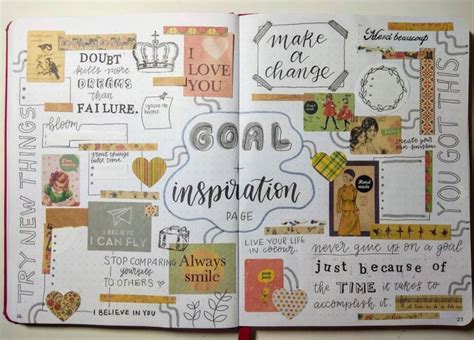 TRY NEW THINGS
DOUBT
kills more
DREAMS
than
FAILURE.
I
LOVE
YOU
bloom
GOAL
inspiration
PAGE
I BELIEVE
I CAN FLY
STOP COMPARING
yourself
TO OTHERS
Always
smile
I BELIEVE IN YOU
26
make
a
change
Merci beaucoup
create your
own sunshine
Hand
made
LIVE YOUR LIFE
IN COLOUR.
never give up on a goal
just because of
the TIME it takes to
accomplish it.
YOU GOT THIS
27